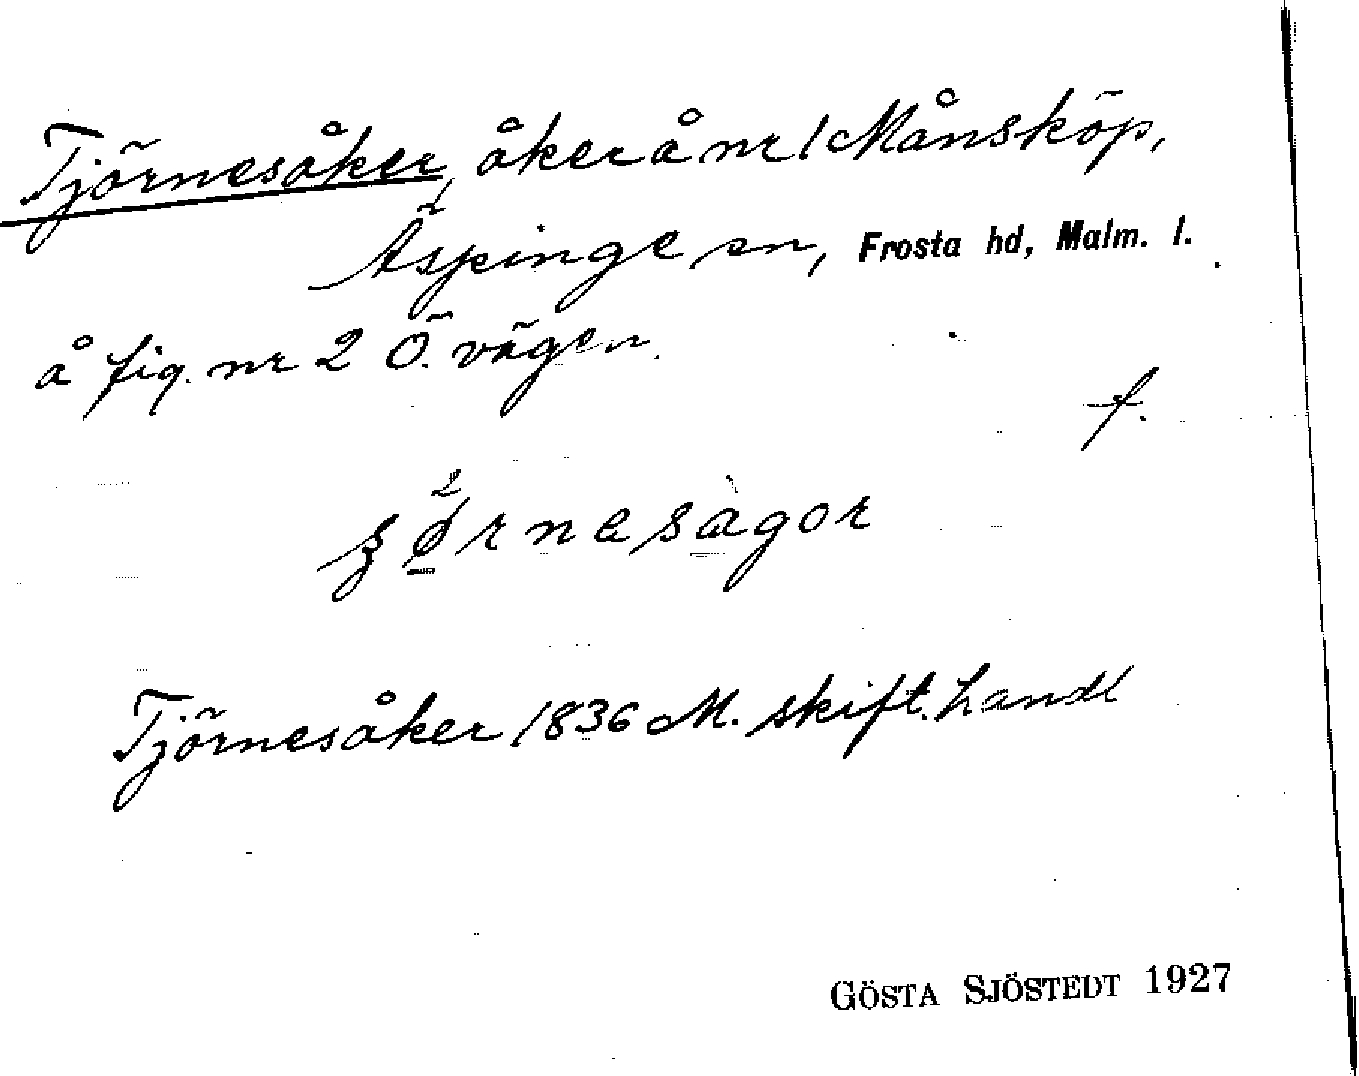 Tjörnesåker, åker å nr 1 Månsköp,
Äspinge sn, Frosta hd, Malm. l.
å fig. nr 2 Ö. vägen.
f.
Tjörnesåker 1836 M. skift. handl
GÖSTA SJÖSTEDT 1927